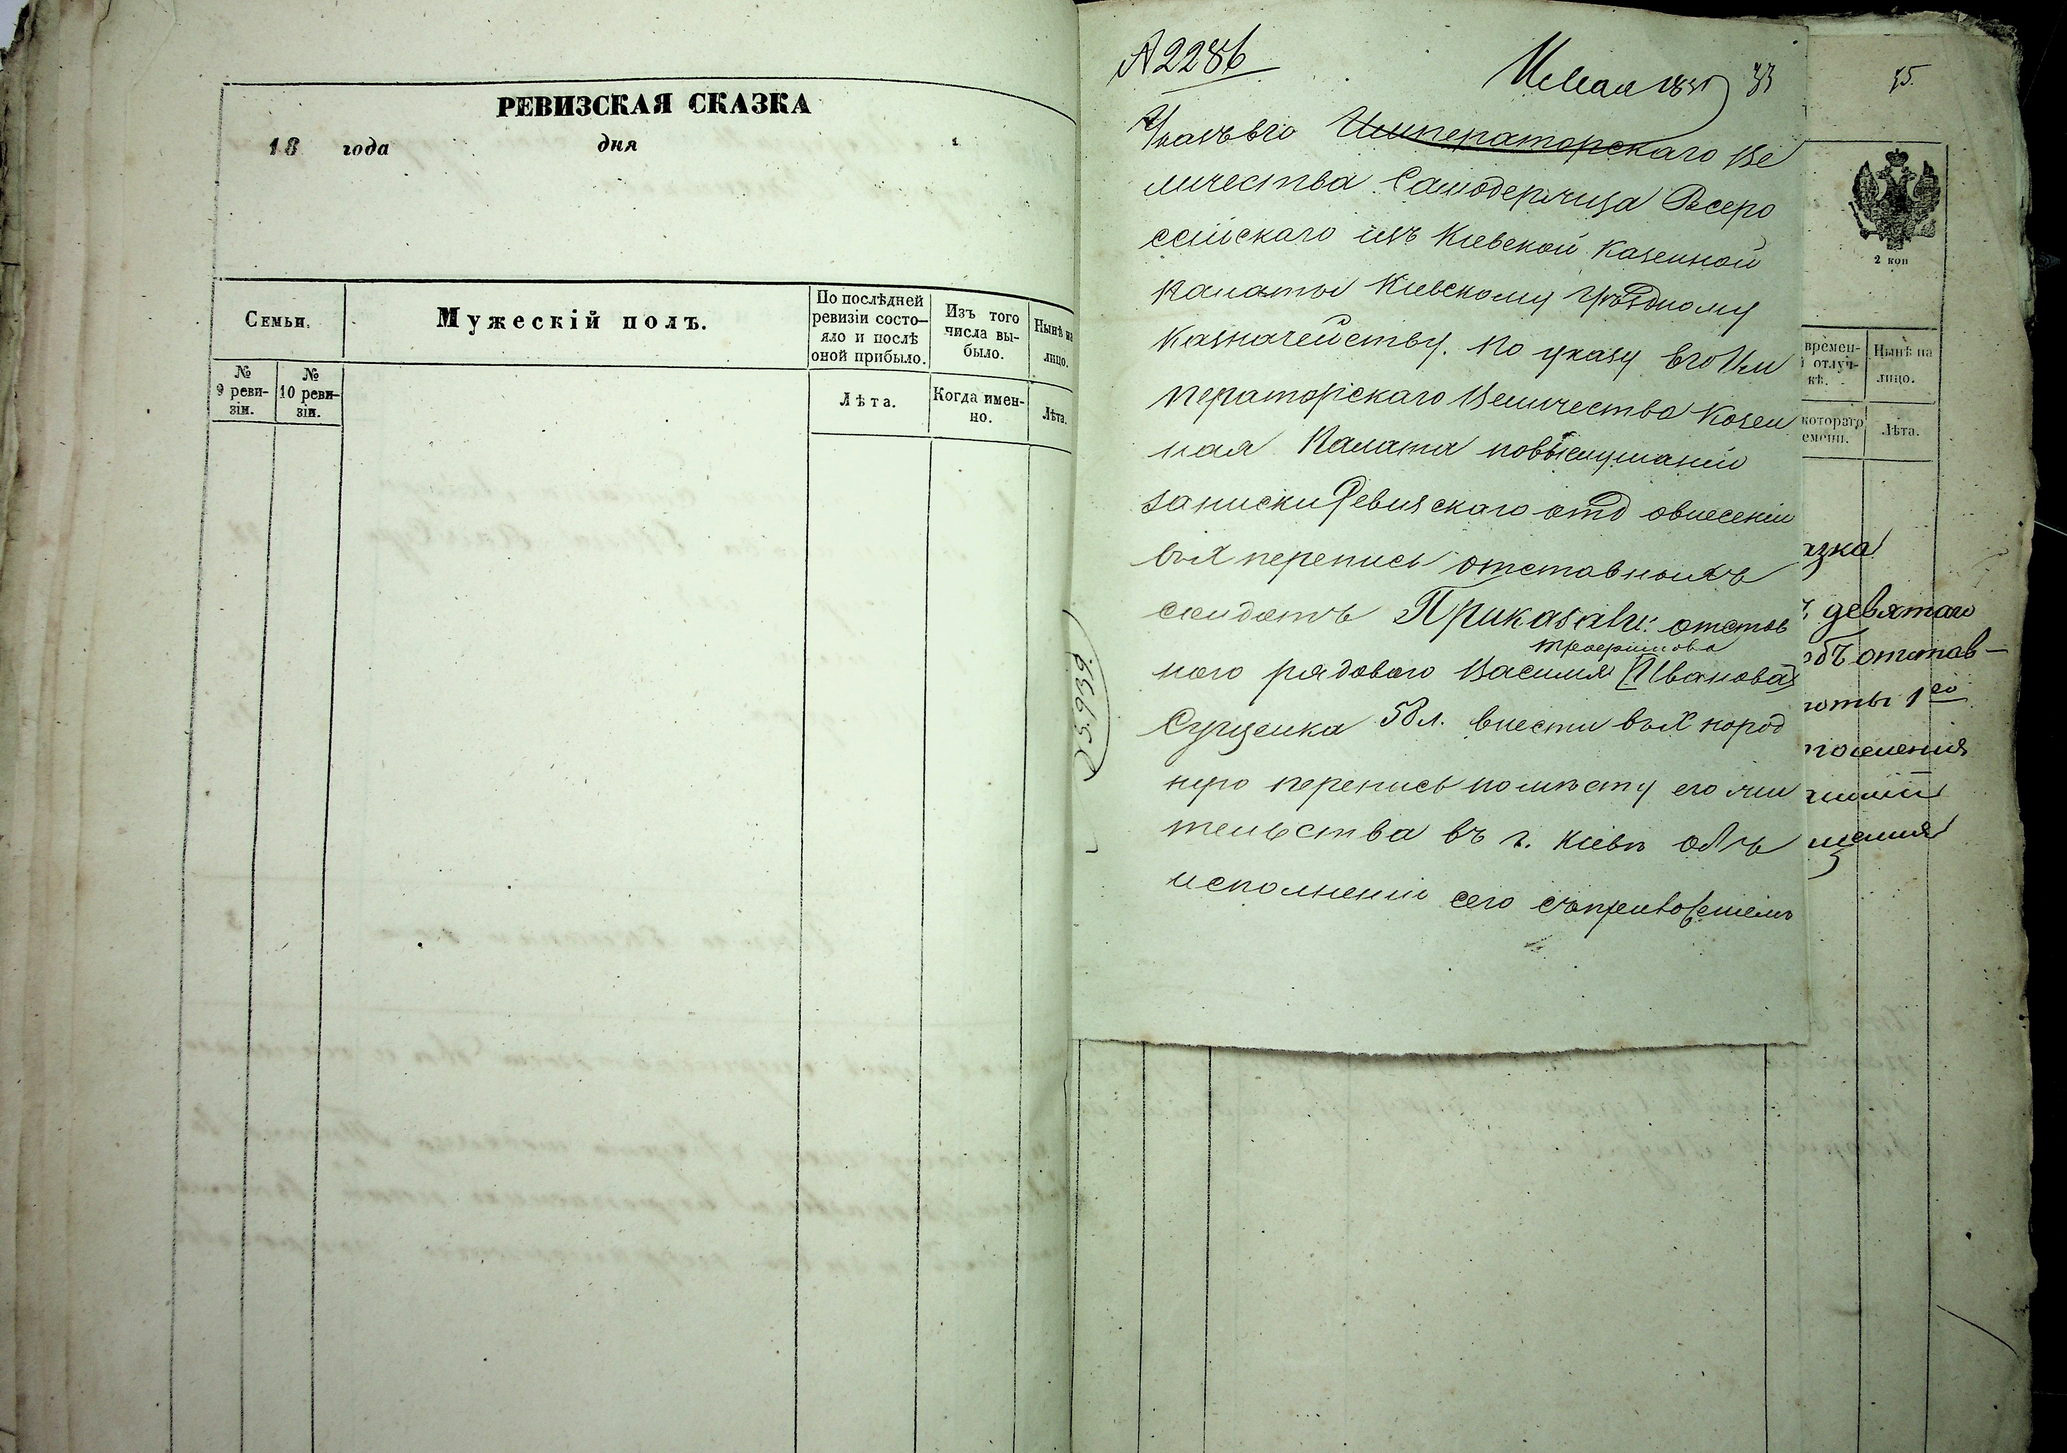 РЕВИЗСКАЯ СКАЗКА
18 года дня
Семьи.
Мужескій полъ.
По послѣдней ревизіи состо-
яло и послѣ
оной прибыло.
Изъ того
числа вы-
было.
Нынѣ на
лицо.
№
9 реви-
зіи.
№
10 реви-
зіи.
Лѣта.
Когда имен-
но.
Лѣта.
2286
33
Указъ Его Императорскаго Ве
личества Самодержца Всеро
ссійскаго изъ Кіевской Казенной
Палаты Кіевскому Уѣздному
Казначейству. По указу Его Им
ператорскаго Величества Казен
ная Палата по выслушаніи
записки Ревизскаго отд о внесеніи
въ Х перепись отставныхъ
солдатъ Приказали: отстав
Трофимова
ного рядового Василія [Иванова]
Сущенка 58 л. внести въ Х народ
ную перепись по мѣсту его жи
тельства въ г. Кіевѣ объ
исполненіи сего
35.
2 коп
времен-
отлуч-
кѣ.
Нынѣ на
лицо.
котораго
емени.
Лѣта.
азка
девятаго
объ отстав-
роты 1го
поселенія